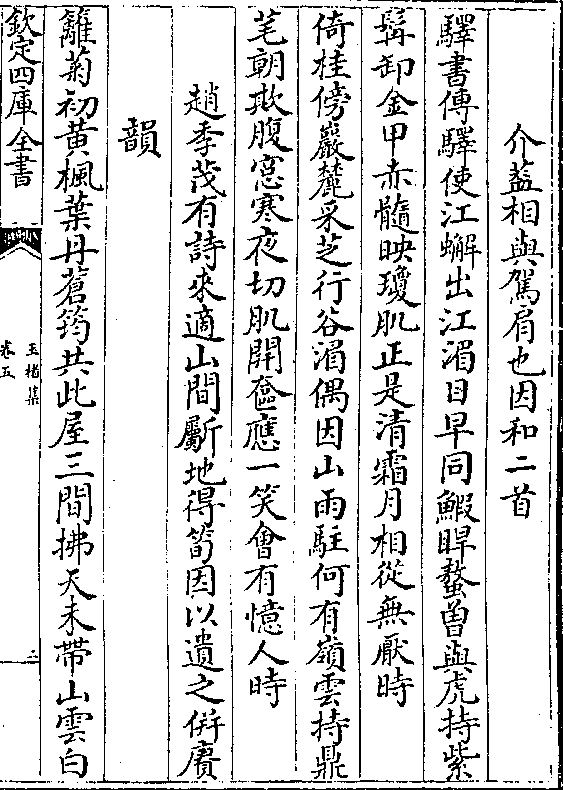 介葢相與駕肩也因和二首
驛書傳驛使江蠏出江湄目早同鰕睅螯曽與虎持紫
髯卸金甲赤髓映瓊肌正是清霜月相從無厭時
倚桂傍巖麓采芝行谷湄偶因山雨駐何有嶺雲持鼎
芼朝欺腹窓寒夜切肌開奩應一笑會有憶人時
趙季茂有詩來適山間斸地得筍因以遺之併賡
韻
籬菊初黄楓葉丹蒼筠共此屋三間拂天未帶山雲白
欽定四庫全書
玉楮集
卷五
二